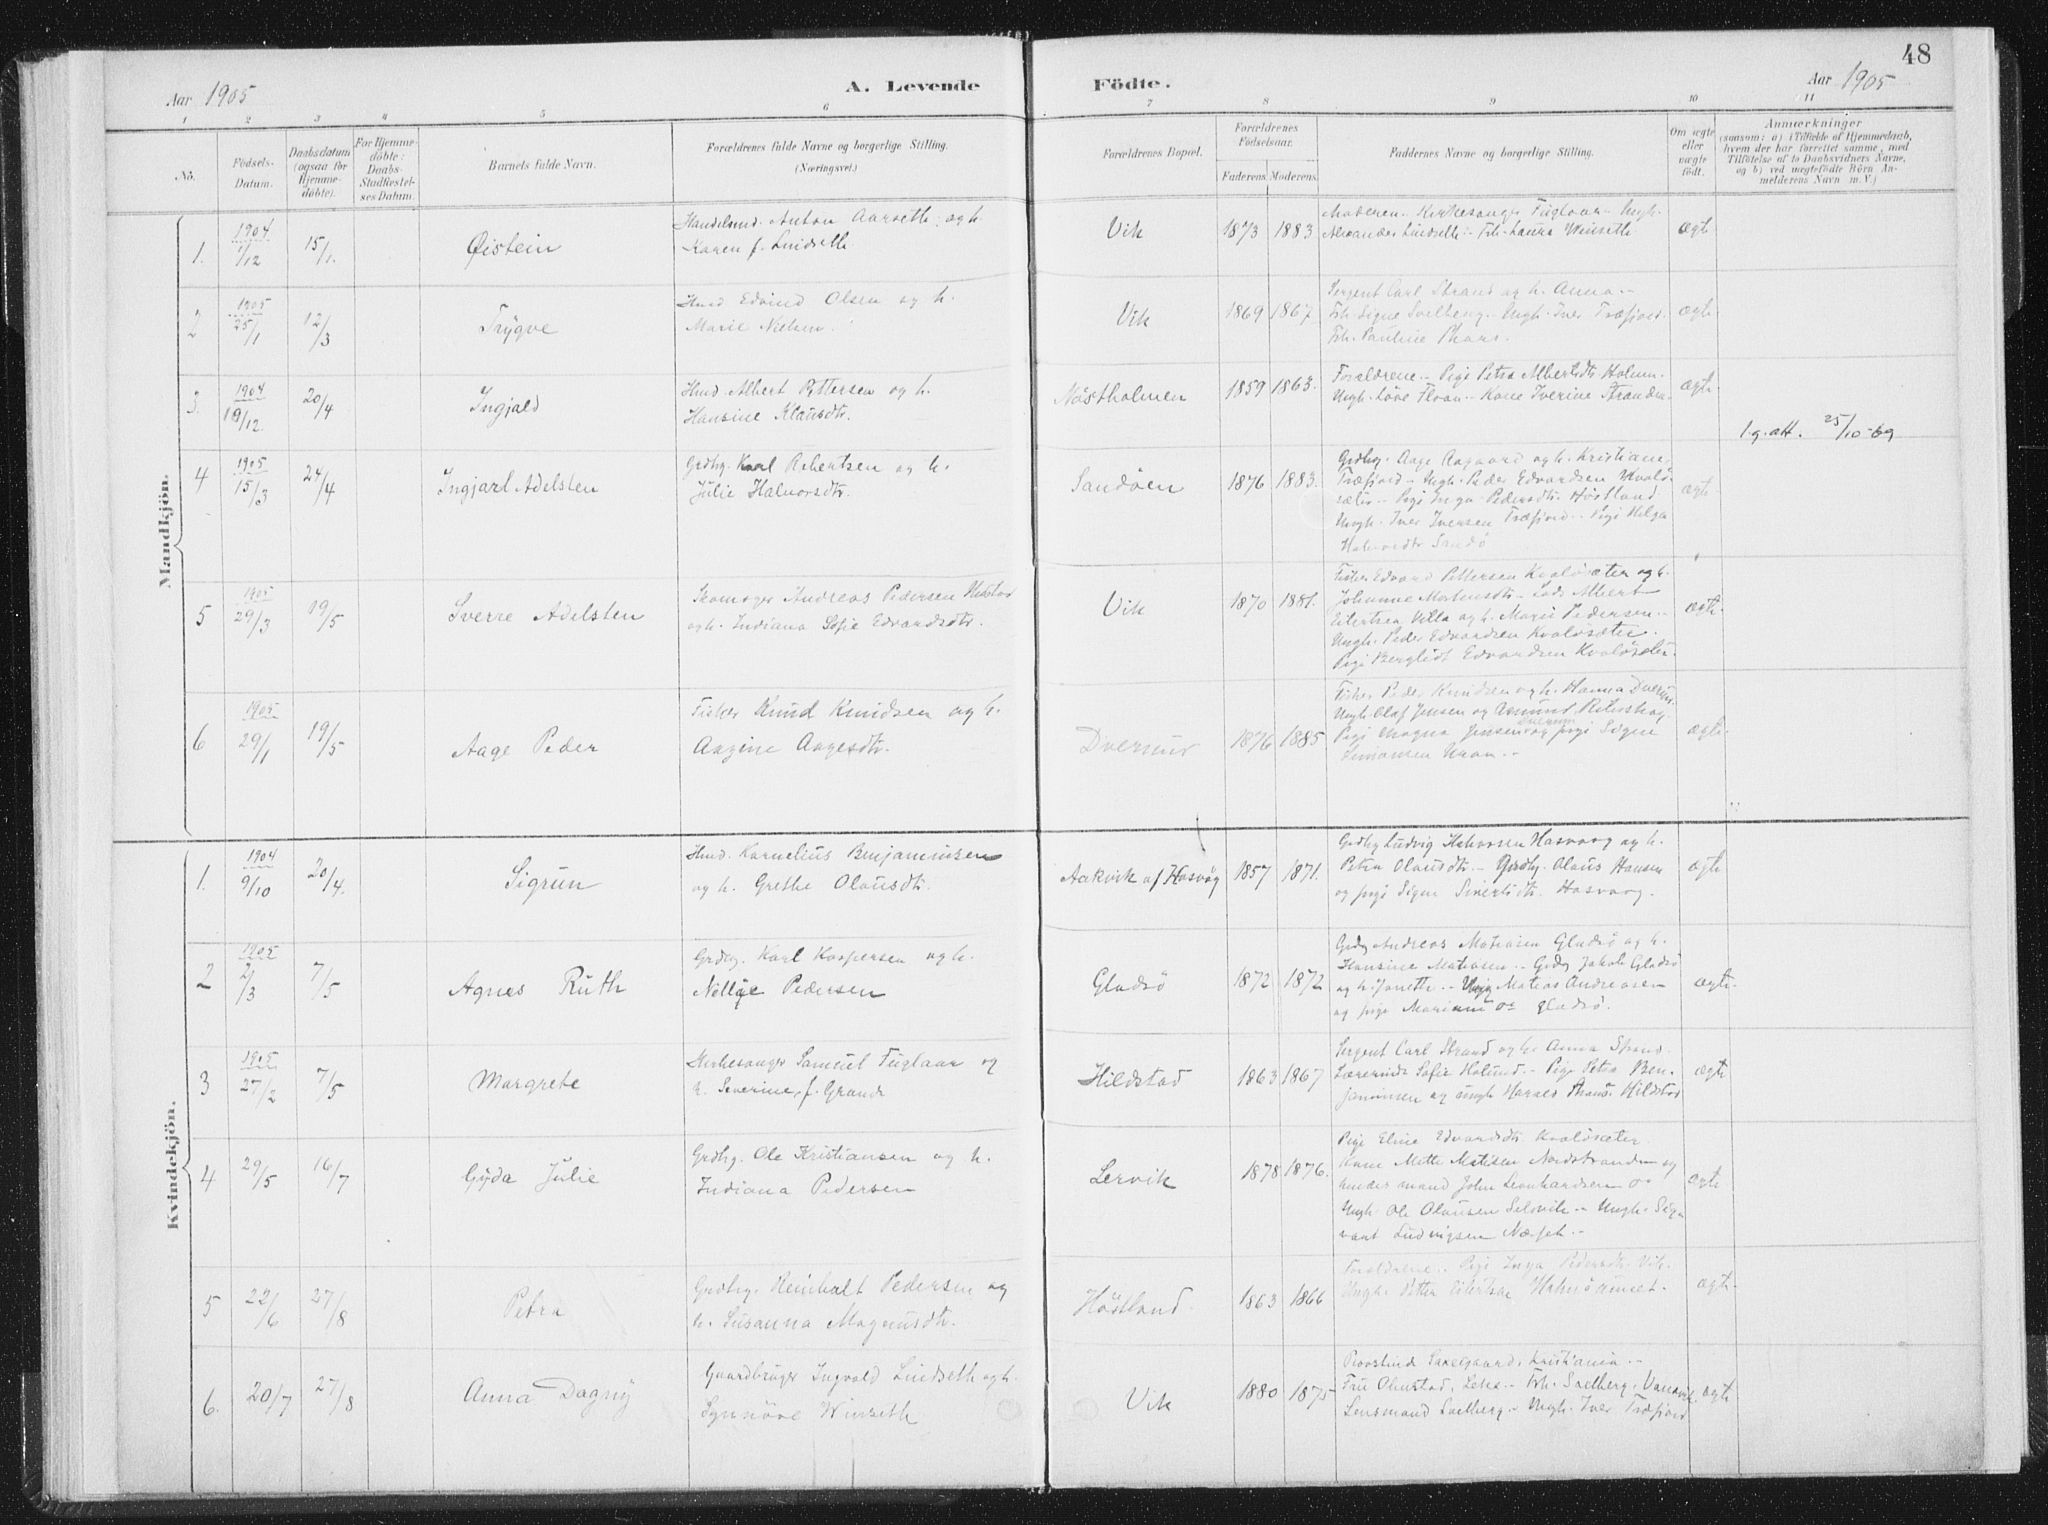 48
Aar 1905 A. Levende Födte. Aar 1905
1 2 3 4 5 6 7 8 9 10 11
No.
Födsels-Datum.
Daabsdatum (ogsaa for Hjemmedöbte).
For Hjemmedöbte: Daabs-Stadfæstelses Datum.
Barnets fulde Navn.
Forældrenes fulde Navne og borgerlige Stilling. (Næringsvei.)
Forældrenes Bopæl.
Forældrenes Födselsaar.
Faderens. Moderens.
Faddernes Navne og borgerlige Stilling.
Om ægte eller uægte födt.
Anmærkninger
(saasom: a) i Tilfælde af Hjemmedaab,
hvem der har forrettet samme, med
Tilföielse af to Daabsvidners Navne,
og b) ved uægtefödte Börn An-
melderens Navn m. V.)
Mandkjön.
1. 1904 1/12 15/1. Øistein
Handelsmd. Anton Aarseth og h.
Karen f. Lindseth
Vik 1873 1883
Moderen - Kirkesanger Fuglaar - Ungk.
Alexander Lindseth - Frk. Laura Winseth
ægte
2 1905 25/1 12/3 Trygve
Hmd Edvind Olsen og h.
Marie Nielsen
Vik 1869 1867
Sergent Carl Strand og h. Anna -
Frk. Signe Sælberg - Ungk. Iver Træfjord.
Frk. Pauline
ægte
3. 1904 19/12 20/4 Ingjald
Hmd Albert Pettersen og h.
Hansine Klausdtr.
Nöstholmen 1859 1863.
Forældrene - Pige Petra Albertsdtr Holmen
Ungk. Floan - Kone Iverine Stranden
ægte
l.g.att. 25/10-69
4 1905 15/3 24/4 Ingjarl Adelsten
Grdbr. Karl Robertsen og h.
Julie Halvorsdtr.
Sandöen 1876 1883.
Grdbr. Aage Aagaard og h. Kristiane
Træfjord - Ungk. Peder Edvardsen Kvalö-
sæter - Pige Inga Pedersdtr Höstland
Ungk. Iver Iversen Træfjord - Pige Helga
Halvorsdtr Sandö
ægte
5 1905 29/3 19/5 Sverre Adelsten
Skomager Andreas Pedersen
og h. Indiana Sofie Edvardsdtr.
Vik 1870 1881.
Fisker Edvard Pettersen Kvalösæter og h.
Johanne Mortensdtr - Lods Albert
Eilertsen Villa og h. Marie Pedersen -
Ungk. Peder Edvardsen Kvalösæter.
Pige Bergliot Edvardsen Kvalösæter.
ægte
6 1905 29/1 19/5 Aage Peder
Fisker Knud Knudsen og h.
Aagine Aagesdtr.
Dversund 1876 1885
Fisker Peder Knudsen og h. Hanna
Ungk. Olaf Jensen og Asmund
Pige Magna Jensen og pige Signe
Simonsen
ægte
Kvindekjön.
1. 1904 9/10 20/4. Sigrun
Hmd. Kornelius Benjaminsen
og h. Grethe Olausdtr.
Aakvik af Hasvåg 1857 1871.
Grdbr Ludvig Halvorsen Hasvaag og h.
Petra Olausdtr. - Grdbr. Olaus Hansen
og pige Signe Sivertsdtr. Hasvaag.
ægte
2 1905 2/3 7/5 Agnes Ruth
Grdbr. Karl Kaspersen og h.
Nellije Pedersen
Gladsö 1872 1872
Grdbr Andreas Matiasen Gladsö og h.
Hansine Matiasen - Grdbr Jakob Gladsö
og h. Janeth - Ungk Matias Andreasen
og pige Marianne Gladsö.
ægte
3 1905 27/2 7/5 Margrete
Kirkesanger Samuel Fuglaar og
h. Severine, f. Grande
Hildstad 1863 1867
Sergent Carl Strand og h. Anna Strand.
Lærerinde Sofie Holund - Pige Petra Ben-
jaminsen og ungk Hildstad
ægte
4 29/5 16/7 Gyda Julie
Grdbr. Ole Kristiansen og h.
Indiana Pedersen
Lervik 1878 1876.
Pige Eline Edvardsdtr. Kvalösæter.
Kone Mette Matisen Nordstranden og
hendes mand John Leonhardsen
Ungk. Ole Olausen Selsvik - Ungk. Sigv
vart Ludvigsen
ægte
5 22/6 27/8 Petra
Grdbr. Reinholt Pedersen og
h. Susanna Magnusdtr.
Höstland. 1863 1866
Forældrene - Pige Inga Pedersdtr. Vik.
Ungk. Petter Eilertsen
ægte
6. 20/7 27/8 Anna Dagny
Gaardbruger Ingvald Lindseth og h.
Synnöve Winseth
Vik 1880 1875
Provstinde Saxegaard, Kristiania -
Fru Olmstad, Leka - Frk. Sælberg,
Lensmand Sælberg - Ungk. Iver Træfjord
ægte